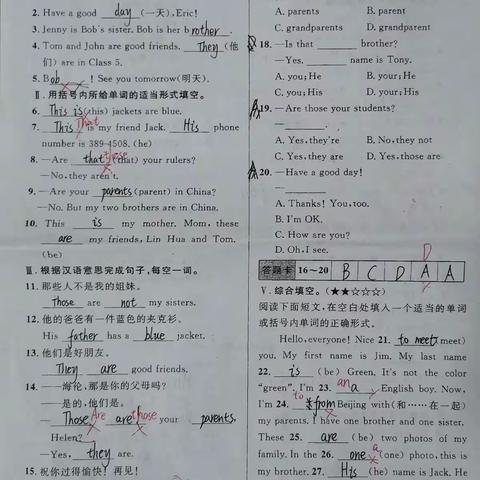 2. Have a good day (一天), Eric!
3. Jenny is Bob's sister. Bob is her brother.
4. Tom and John are good friends. They (他
们) are in Class 5.
5. Bob! See you tomorrow(明天).
Ⅱ. 用括号内所给单词的适当形式填空。
6. This is (this) jackets are blue.
7. This That is my friend Jack. His phone
number is 389-4508. (he)
8. —Are that those (that) your rulers?
—No, they aren't.
9. —Are your parents (parent) in China?
—No. But my two brothers are in China.
10. This is my mother. Mom, these
are my friends, Lin Hua and Tom.
(be)
Ⅲ. 根据汉语意思完成句子,每空一词。
11. 那些人不是我的姐妹。
Those are not my sisters.
12. 他的爸爸有一件蓝色的夹克衫。
His father has a blue jacket.
13. 他们是好朋友。
They are good friends.
14. ——海伦,那是你的父母吗?
——是的,他们是。
—Those Are are those your parents,
Helen?
—Yes, they are.
15. 祝你过得愉快!再见!
A. parents B. parent
C. grandparents D. grandparent
18. —Is that ______ brother?
—Yes. ______ name is Tony.
A. you; He B. your; He
C. you; His D. your; His
19. —Are those your students?
—______.
A. Yes, they're B. No, they not
C. Yes, they are D. Yes, those are
20. —Have a good day!
—______
A. Thanks! You, too.
B. I'm OK.
C. How are you?
D. Oh, I see.
D
答题卡 16～20 B C D A A
Ⅴ. 综合填空。(★★☆☆☆)
阅读下面短文,在空白处填入一个适当的单词
或括号内单词的正确形式。
Hello, everyone! Nice 21. to meet (meet)
you. My first name is Jim. My last name
22. is (be) Green. It's not the color
"green". I'm 23. a an English boy. Now,
I'm 24. to from Beijing with(和……在一起)
my parents. I have one brother and one sister.
These 25. are (be) two photos of my
family. In the 26. one a (one) photo, this is
my brother. 27. His (he) name is Jack. He